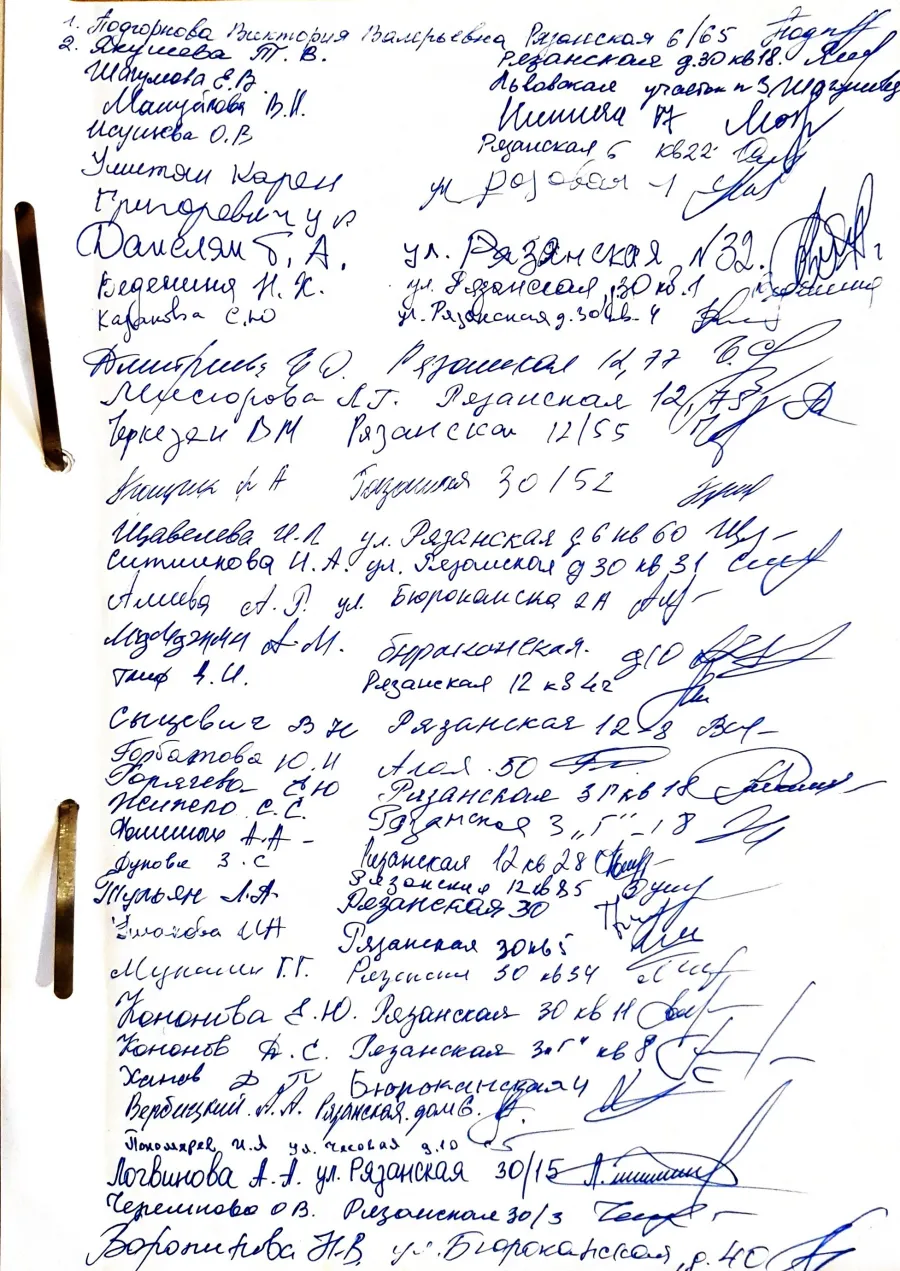 1. Подгорнова Виктория Валерьевна Рязанская 6/65
2. Якушева Т. В. Рязанская д.30 кв 18.
Шагумова Е.В. Львовская участок н 3
В.И. 17
О.В Рязанская 6 кв 22
Карен ул розовая 1
Григорович
Данелян Г. А. ул. Рязанская N32.
Веденина Н. К. ул. Рязанская, 30 кв. 1
Казакова С.Ю ул. Рязанская д. 30 кв. 4
Рязанская 12, 77
Л.Г. Рязанская 12, 73
Черкезан ВМ Рязанская 12/55
30/52
Щавелева И.Л ул. Рязанская д 6 кв 60
Ситникова И. А. ул. Рязанская д 30 кв 31
Алиева А. Р. ул. Бюроканска 2А
А.М. бюраканская. д10
Рязанская 12 кв 42
Сыцевич В Н Рязанская 12-8
Горбатова Ю.И Алая 50
Горячева Рязанская 3 Г кв 18
С. С. Рязанская 3 „Г" - 18
А.А - Рязанская 12 кв 28
З. С Рязанская 12 кв 85
Л.А. Рязанская 30
Рязанская 30 кв 5
Г.Г. Рязанская 30 кв 34
Кононова Е.Ю. Рязанская 30 кв 11
Кононов А. С. Рязанская 3„Г" кв 8
Ханов Д П Бюроканская 4
Вербицкий. А.А. Рязанская. дом 6.
Пономарев И.А ул. Часовая д.10
Логвинова А. А. ул. Рязанская 30/15
О В. Рязанская 30/3
Н.В. ул. Бюроканская, д. 40